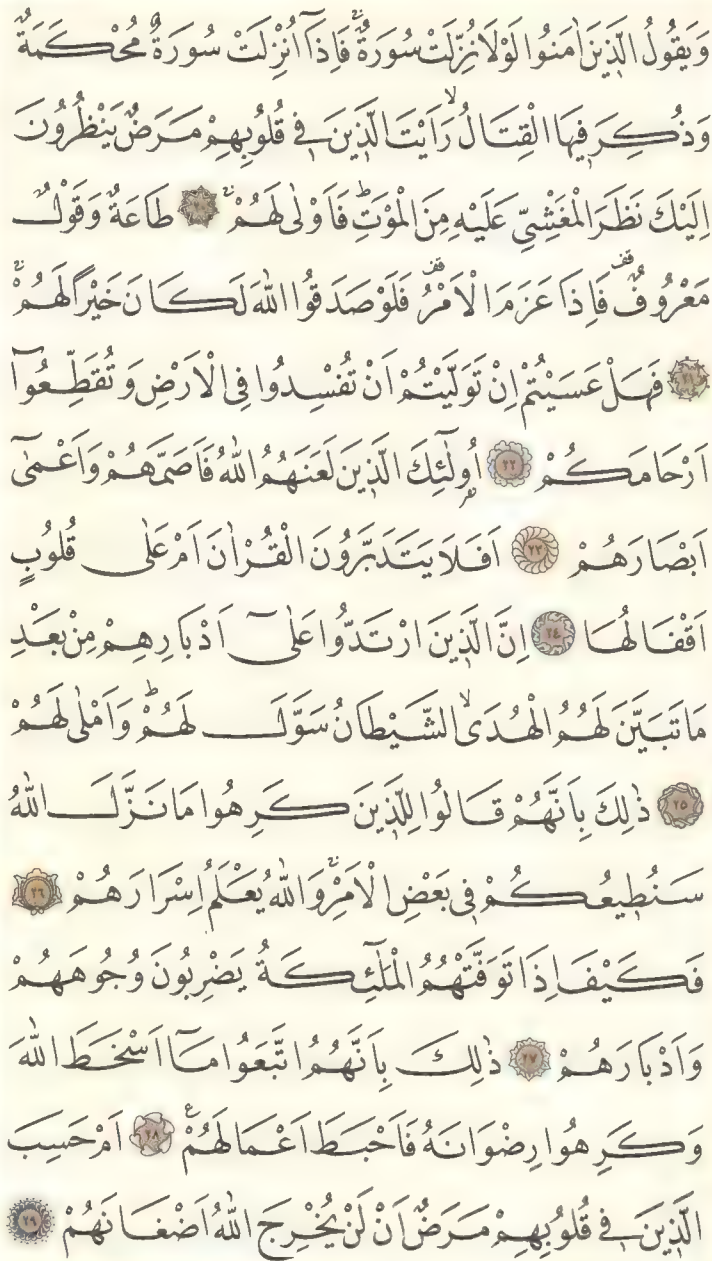 وَيَقُولُ الَّذ۪ينَ اٰمَنُوا لَوْلَا نُزِّلَتْ سُورَةٌۚ فَاِذَٓا اُنْزِلَتْ سُورَةٌ مُحْكَمَةٌ
وَذُكِرَ ف۪يهَا الْقِتَالُۙ رَاَيْتَ الَّذ۪ينَ ف۪ي قُلُوبِهِمْ مَرَضٌ يَنْظُرُونَ
اِلَيْكَ نَظَرَ الْمَغْشِيِّ عَلَيْهِ مِنَ الْمَوْتِۜ فَاَوْلٰى لَهُمْۚ ﴿٢٠﴾ طَاعَةٌ وَقَوْلٌ
مَعْرُوفٌ۠ فَاِذَا عَزَمَ الْاَمْرُ۠ فَلَوْ صَدَقُوا اللّٰهَ لَكَانَ خَيْرًا لَهُمْۚ
﴿٢١﴾ فَهَلْ عَسَيْتُمْ اِنْ تَوَلَّيْتُمْ اَنْ تُفْسِدُوا فِي الْاَرْضِ وَتُقَطِّعُٓوا
اَرْحَامَكُمْ ﴿٢٢﴾ اُو۬لٰٓئِكَ الَّذ۪ينَ لَعَنَهُمُ اللّٰهُ فَاَصَمَّهُمْ وَاَعْمٰٓى
اَبْصَارَهُمْ ﴿٢٣﴾ اَفَلَا يَتَدَبَّرُونَ الْقُرْاٰنَ اَمْ عَلٰى قُلُوبٍ
اَقْفَالُهَا ﴿٢٤﴾ اِنَّ الَّذ۪ينَ ارْتَدُّوا عَلٰٓى اَدْبَارِهِمْ مِنْ بَعْدِ
مَا تَبَيَّنَ لَهُمُ الْهُدَىۙ الشَّيْطَانُ سَوَّلَ لَهُمْۜ وَاَمْلٰى لَهُمْ
﴿٢٥﴾ ذٰلِكَ بِاَنَّهُمْ قَالُوا لِلَّذ۪ينَ كَرِهُوا مَا نَزَّلَ اللّٰهُ
سَنُط۪يعُكُمْ ف۪ي بَعْضِ الْاَمْرِۚ وَاللّٰهُ يَعْلَمُ اِسْرَارَهُمْ ﴿٢٦﴾
فَكَيْفَ اِذَا تَوَفَّتْهُمُ الْمَلٰٓئِكَةُ يَضْرِبُونَ وُجُوهَهُمْ
وَاَدْبَارَهُمْ ﴿٢٧﴾ ذٰلِكَ بِاَنَّهُمُ اتَّبَعُوا مَٓا اَسْخَطَ اللّٰهَ
وَكَرِهُوا رِضْوَانَهُ فَاَحْبَطَ اَعْمَالَهُمْ۟ ﴿٢٨﴾ اَمْ حَسِبَ
الَّذ۪ينَ ف۪ي قُلُوبِهِمْ مَرَضٌ اَنْ لَنْ يُخْرِجَ اللّٰهُ اَضْغَانَهُمْ ﴿٢٩﴾